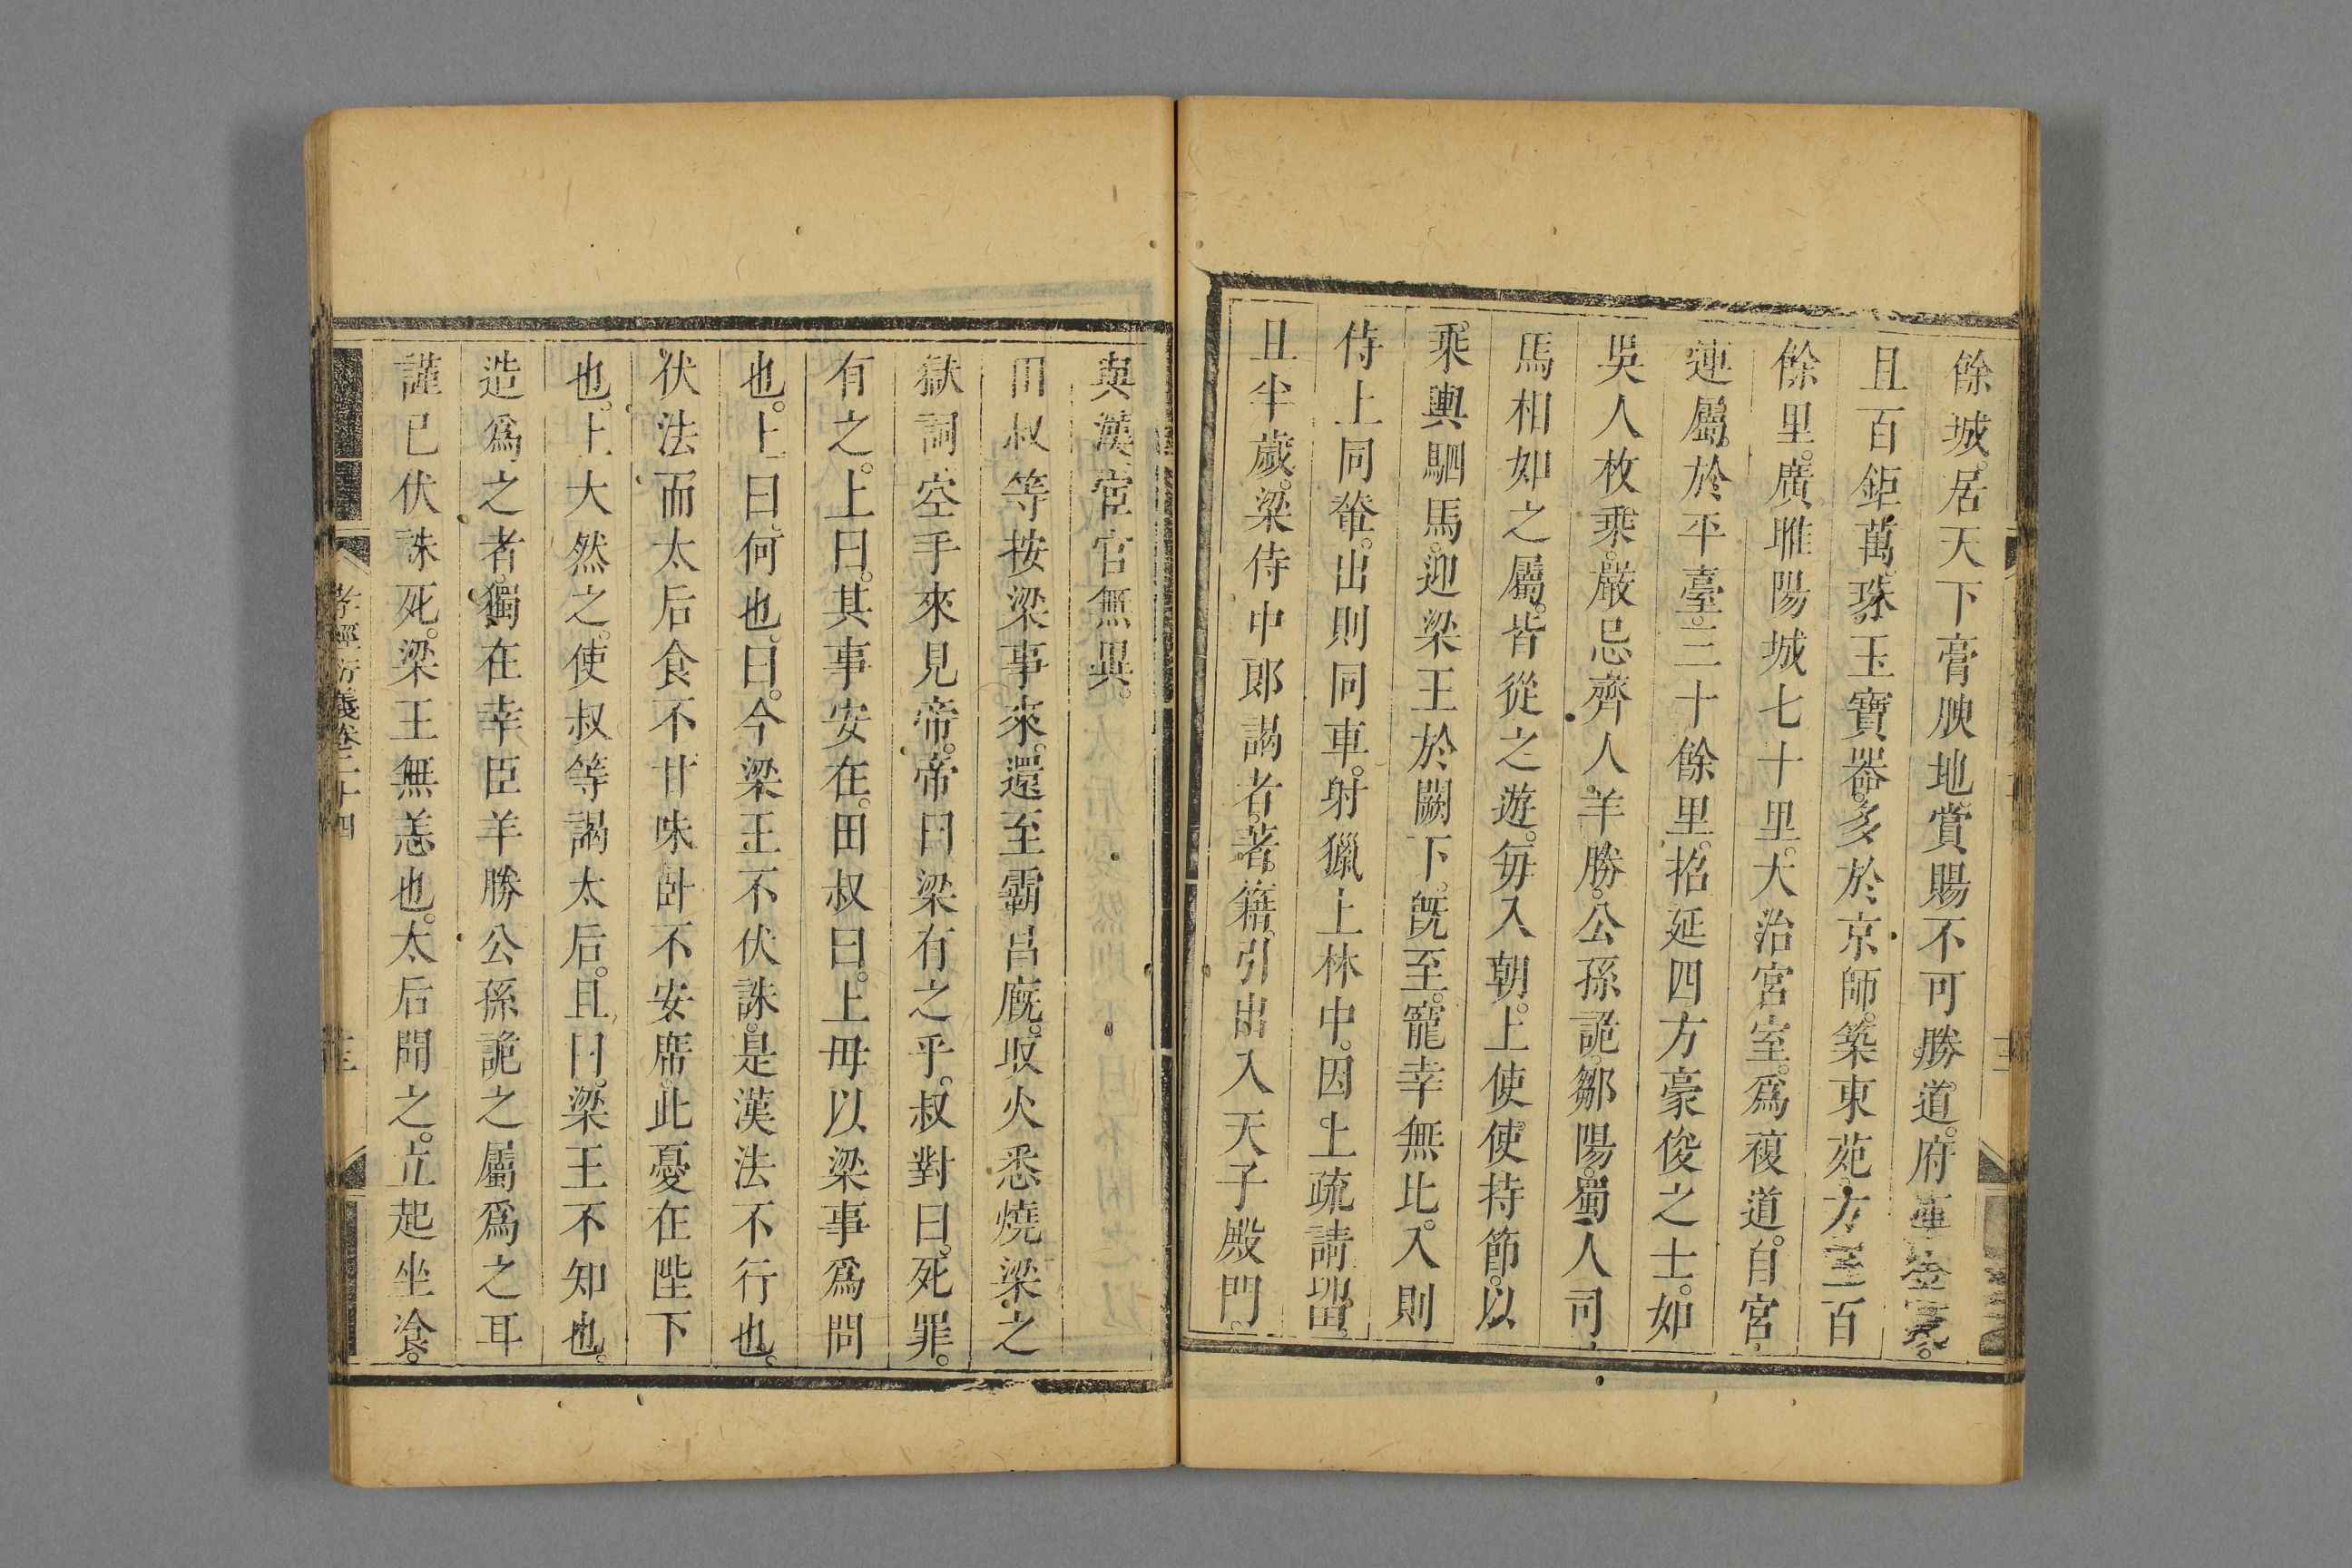 餘城。居天下膏腴地賞賜不可勝道。府庫金錢。
且百鉅萬珠玉寶器。多於京師。築東苑。方三百
餘里。廣睢陽城七十里。大治宮室。爲複道。自宮
連屬。於平臺。三十餘里。招延四方豪俊之士。如
吳人枚乘。嚴忌齊人羊勝。公孫詭鄒陽。蜀人司
馬相如之屬。皆從之遊。每入朝。上使使持節。以
乘輿駟馬。迎梁王於闕下。旣至。寵幸無比。入則
侍上同輦。出則同車。射獵上林中。因上疏請留。
且半歲。梁侍中郎謁者。著。籍。引出入天子殿門。
與漢宦官無異。
田叔等按梁事來。還至霸昌廐。取火悉燒梁之
獄詞。空手來見帝。帝曰。梁有之乎。叔對曰。死罪。
有之。上曰。其事安在。田叔曰。上毋以梁事爲問
也。上曰。何也。曰。今梁王不伏誅。是漢法不行也。
伏法而太后食不甘味。臥不安席。此憂在陛下
也。上大然之。使叔等謁太后。且曰。梁王不知也。
造爲之者。獨在幸臣羊勝公孫詭之屬爲之耳
謹已伏誅死。梁王無恙也。太后聞之。立起坐飡。
孝經衍義卷二十四